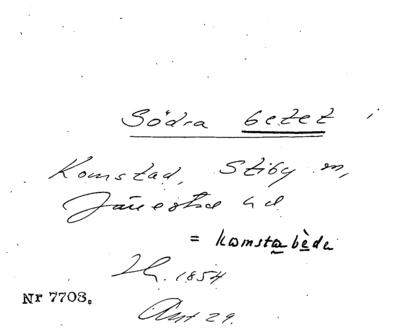 Södra betet i
Komstad, Stiby sn,
Järrestad hd
= komstabèdė
1854
Nr 7708.
Ant 29.